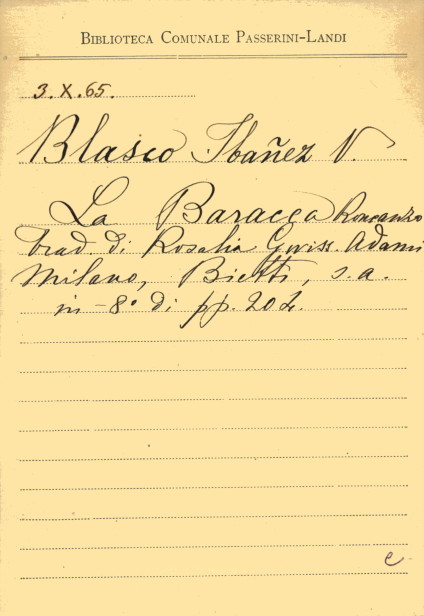 BIBLIOTECA COMUNALE PASSERINI-LANDI
3.X.65.
Blasco Ibañez V.
La Baracca Romanzo
trad. di Rosalia Gwiss. Adami
Milano, Bietti, s.a.
in-8° di pp. 202.
e